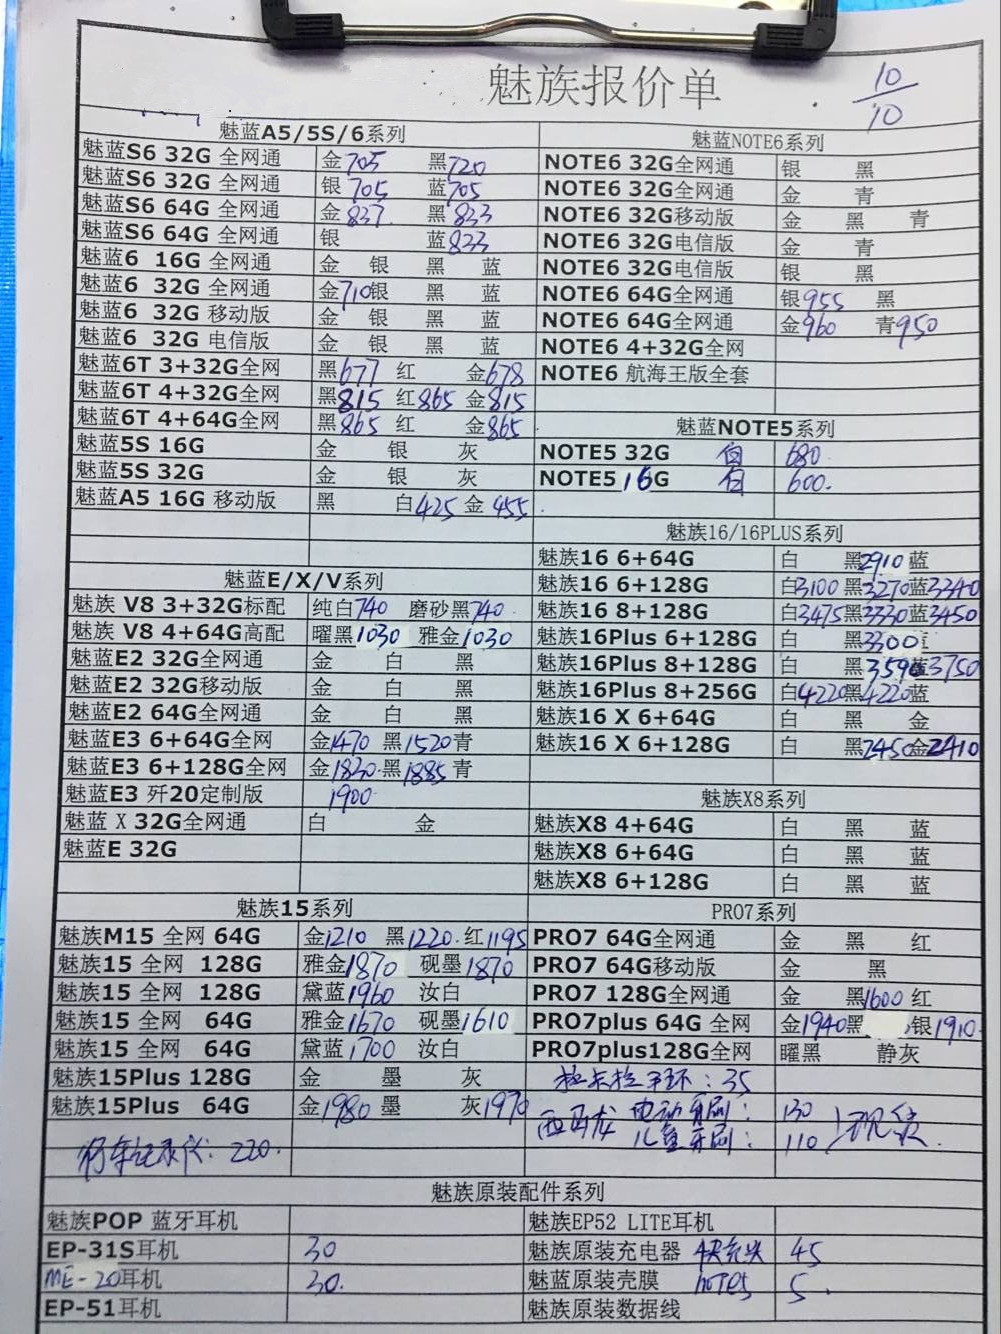 魅族报价单
10/10
魅蓝A5/5S/6系列
魅蓝S6 32G 全网通 金705 黑720
魅蓝S6 32G 全网通 银705 蓝705
魅蓝S6 64G 全网通 金837 黑833
魅蓝S6 64G 全网通 银 蓝833
魅蓝6 16G 全网通 金 银 黑 蓝
魅蓝6 32G 全网通 金710银 黑 蓝
魅蓝6 32G 移动版 金 银 黑 蓝
魅蓝6 32G 电信版 金 银 黑 蓝
魅蓝6T 3+32G全网 黑677 红 金678
魅蓝6T 4+32G全网 黑815 红865 金815
魅蓝6T 4+64G全网 黑865 红 金865
魅蓝5S 16G 金 银 灰
魅蓝5S 32G 金 银 灰
魅蓝A5 16G 移动版 黑 白425 金455
魅蓝E/X/V系列
魅族 V8 3+32G标配 纯白740 磨砂黑740
魅族 V8 4+64G高配 曜黑1030 雅金1030
魅蓝E2 32G全网通 金 白 黑
魅蓝E2 32G移动版 金 白 黑
魅蓝E2 64G全网通 金 白 黑
魅蓝E3 6+64G全网 金1470 黑1520青
魅蓝E3 6+128G全网 金1830.黑1885 青
魅蓝E3 歼20定制版 1900
魅蓝 X 32G全网通 白 金
魅蓝E 32G
魅族15系列
魅族M15 全网 64G 金1210 黑1220.红1195
魅族15 全网 128G 雅金1870 砚墨1870
魅族15 全网 128G 黛蓝1960 汝白
魅族15 全网 64G 雅金1670 砚墨1610
魅族15 全网 64G 黛蓝1700 汝白
魅族15Plus 128G 金 墨 灰
魅族15Plus 64G 金1980 墨 灰1970
行车记录仪: 220.
魅蓝NOTE6系列
NOTE6 32G全网通 银 黑
NOTE6 32G全网通 金 青
NOTE6 32G移动版 金 黑 青
NOTE6 32G电信版 金 青
NOTE6 32G电信版 银 黑
NOTE6 64G全网通 银955 黑
NOTE6 64G全网通 金960 青950
NOTE6 4+32G全网
NOTE6 航海王版全套
魅蓝NOTE5系列
NOTE5 32G 白 680
NOTE5 16G 白 600.
魅族16/16PLUS系列
魅族16 6+64G 白 黑2910 蓝
魅族16 6+128G 白3100 黑3270蓝3340
魅族16 8+128G 白3475黑3330蓝3450
魅族16Plus 6+128G 白 黑3300
魅族16Plus 8+128G 白 黑3590蓝3750
魅族16Plus 8+256G 白4220黑4220蓝
魅族16 X 6+64G 白 黑 金
魅族16 X 6+128G 白 黑2450金2410
魅族X8系列
魅族X8 4+64G 白 黑 蓝
魅族X8 6+64G 白 黑 蓝
魅族X8 6+128G 白 黑 蓝
PRO7系列
PRO7 64G全网通 金 黑 红
PRO7 64G移动版 金 黑
PRO7 128G全网通 金 黑1600 红
PRO7plus 64G 全网 金1940黑 银1910
PRO7plus128G全网 曜黑 静灰
拉卡拉手环: 35
西马龙 电动牙刷: 130
儿童牙刷: 110 现货.
魅族原装配件系列
魅族POP 蓝牙耳机
EP-31S耳机 30
ME-20耳机 30.
EP-51耳机
魅族EP52 LITE耳机
魅族原装充电器 快充头 45
魅蓝原装壳膜 note5 5.
魅族原装数据线